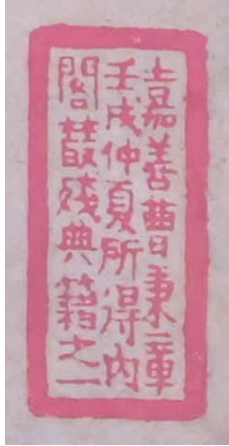 嘉善曹秉章
壬戌仲夏所得内
閣藂殘典籍之一